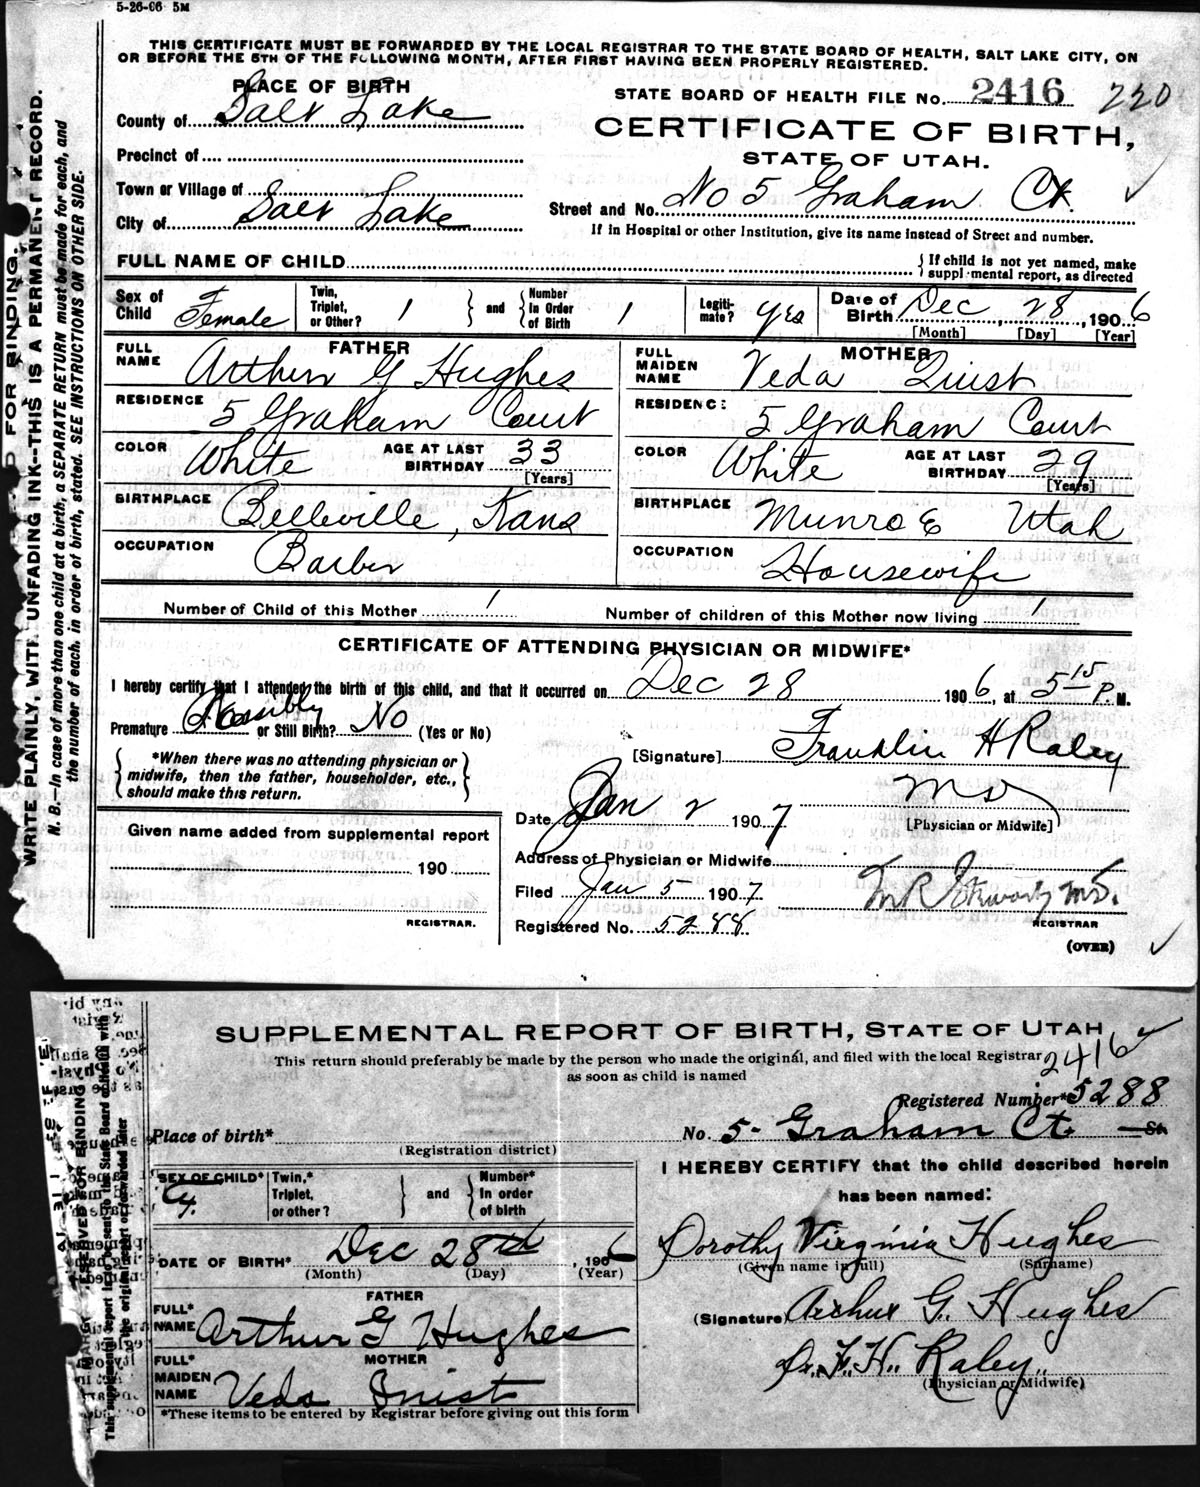 5-26-06 5M
THIS CERTIFICATE MUST BE FORWARDED BY THE LOCAL REGISTRAR TO THE STATE BOARD OF HEALTH, SALT LAKE CITY, ON
OR BEFORE THE 5TH OF THE FOLLOWING MONTH, AFTER FIRST HAVING BEEN PROPERLY REGISTERED.
PLACE OF BIRTH
STATE BOARD OF HEALTH FILE No. 2416 220
County of Salt Lake
CERTIFICATE OF BIRTH,
STATE OF UTAH.
Precinct of
Town or Village of
City of Salt Lake
Street and No. No 5 Graham Ct.
If in Hospital or other Institution, give its name instead of Street and number.
FULL NAME OF CHILD
{If child is not yet named, make
suppl mental report, as directed
Sex of Child Female
Twin, Triplet, or Other? 1 } and { Number In Order of Birth 1
Legiti-mate? yes
Date of Birth Dec 28, 1906
[Month] [Day] [Year]
FATHER
FULL NAME Arthur G Hughes
RESIDENCE 5 Graham Court
COLOR White AGE AT LAST BIRTHDAY 33 [Years]
BIRTHPLACE Belleville, Kans
OCCUPATION Barber
MOTHER
FULL MAIDEN NAME Veda Quist
RESIDENC: 5 Graham Court
COLOR White AGE AT LAST BIRTHDAY 29 [Years]
BIRTHPLACE Munroe Utah
OCCUPATION Housewife
Number of Child of this Mother 1 Number of children of this Mother now living 1
CERTIFICATE OF ATTENDING PHYSICIAN OR MIDWIFE*
I hereby certify that I attended the birth of this child, and that it occurred on Dec 28 1906, at 5 15 P.M.
Premature Possibly or Still Birth? No (Yes or No)
[Signature] Franklin H Raley
MD
[Physician or Midwife]
{*When there was no attending physician or
midwife, then the father, householder, etc.,
should make this return.}
Date Jan 2 1907
Given name added from supplemental report
190
REGISTRAR.
Address of Physician or Midwife
Filed Jan 5 1907
REGISTRAR
Registered No. 5288
(OVER)
WRITE PLAINLY, WITH UNFADING INK--THIS IS A PERMANENT RECORD.
N. B.—In case of more than one child at a birth, a SEPARATE RETURN must be made for each, and
the number of each, in order of birth, stated. SEE INSTRUCTIONS ON OTHER SIDE.
FOR BINDING.
SUPPLEMENTAL REPORT OF BIRTH, STATE OF UTAH
This return should preferably be made by the person who made the original, and filed with the local Registrar
as soon as child is named
2416
Registered Number* 5288
Place of birth*
(Registration district)
No. 5- Graham Ct. St.
SEX OF CHILD*
Twin,* Triplet, or other? } and { Number* In order of birth
I HEREBY CERTIFY that the child described herein
has been named:
DATE OF BIRTH* Dec 28th, 1906
(Month) (Day) (Year)
Dorothy Virginia Hughes
(Given name in full) (Surname)
FATHER
FULL* NAME Arthur G Hughes
(Signature) Arthur G. Hughes
MOTHER
FULL* MAIDEN NAME Veda Quist
Dr. F. H. Raley
(Physician or Midwife)
*These items to be entered by Registrar before giving out this form